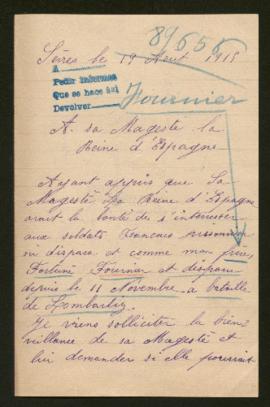 89655
Sèvres le 19 Aout 1915
A
Pedir informes
Que se hace así
Devolver
Fournier
A sa Magesté la
Reine d'Espagne
Ayant appris que Sa
Magesté La Reine d'Espagne
avait la bonté de s'intéresser
aux soldats Francais prisonniers
ou disparu et comme mon frère
Fortuné Fournier et disparu
depuis le 11 Novembre a bataille
de Lombartzy
Je viens solliciter la bien
veillance de sa Magesté et
lui demander si elle pourrait